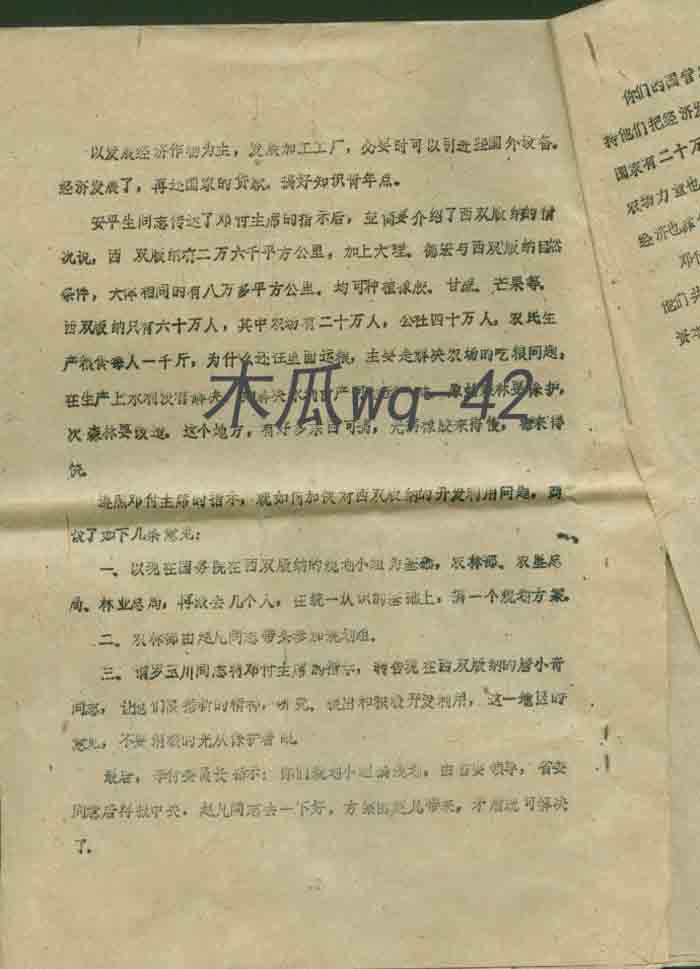 以发展经济作物为主，发展加工工厂，必要时可以引进些国外设备。
经济发展了，再还国家的贷款。搞好知识青年点。
安平生同志传达了邓付主席的指示后，至简要介绍了西双版纳的情
况说，西 双版纳有二万六千平方公里，加上大理、德宏与西双版纳的自然
条件，大体相同的有八万多平方公里。均可种植橡胶、甘蔗、芒果等。
西双版纳只有六十万人，其中农场有二十万人，公社四十万人。农民生
产粮食每人一千斤，为什么还往里面运粮，主要是解决农场的吃粮问题，
在生产上水利没有解决，解决水利 产 原始森林要保护，
次森林要改造。这个地方，有好多东西可搞，光搞橡胶来得慢，
遵照邓付主席的指示，就如何加快对西双版纳的开发利用问题，商
议了如下几条意见：
一、以现在国务院在西双版纳的规划小组为基础，农林部、农垦总
局、林业总局，再派去几个人，在统一认识的基础上，搞一个规划方案。
二、农林部由赵凡同志带去参加规划组。
三、请罗玉川同志将邓付主席的指示，转告现在西双版纳的 同志，
让他们根据新的精神，研究、提出积极开发利用，这一地区的
意见，不要消极的光从保护着眼。
最后， 付委员长指示：你们规划小组搞规划，由省委领导，省委
同意后再报中央。赵凡同志去一下好，方案由赵凡带来，矛盾就可解决
了。
你们的国营
他们把经济发
国家有二十万
农场力量也
经济也
邓付
他们
资本
木瓜wq-42